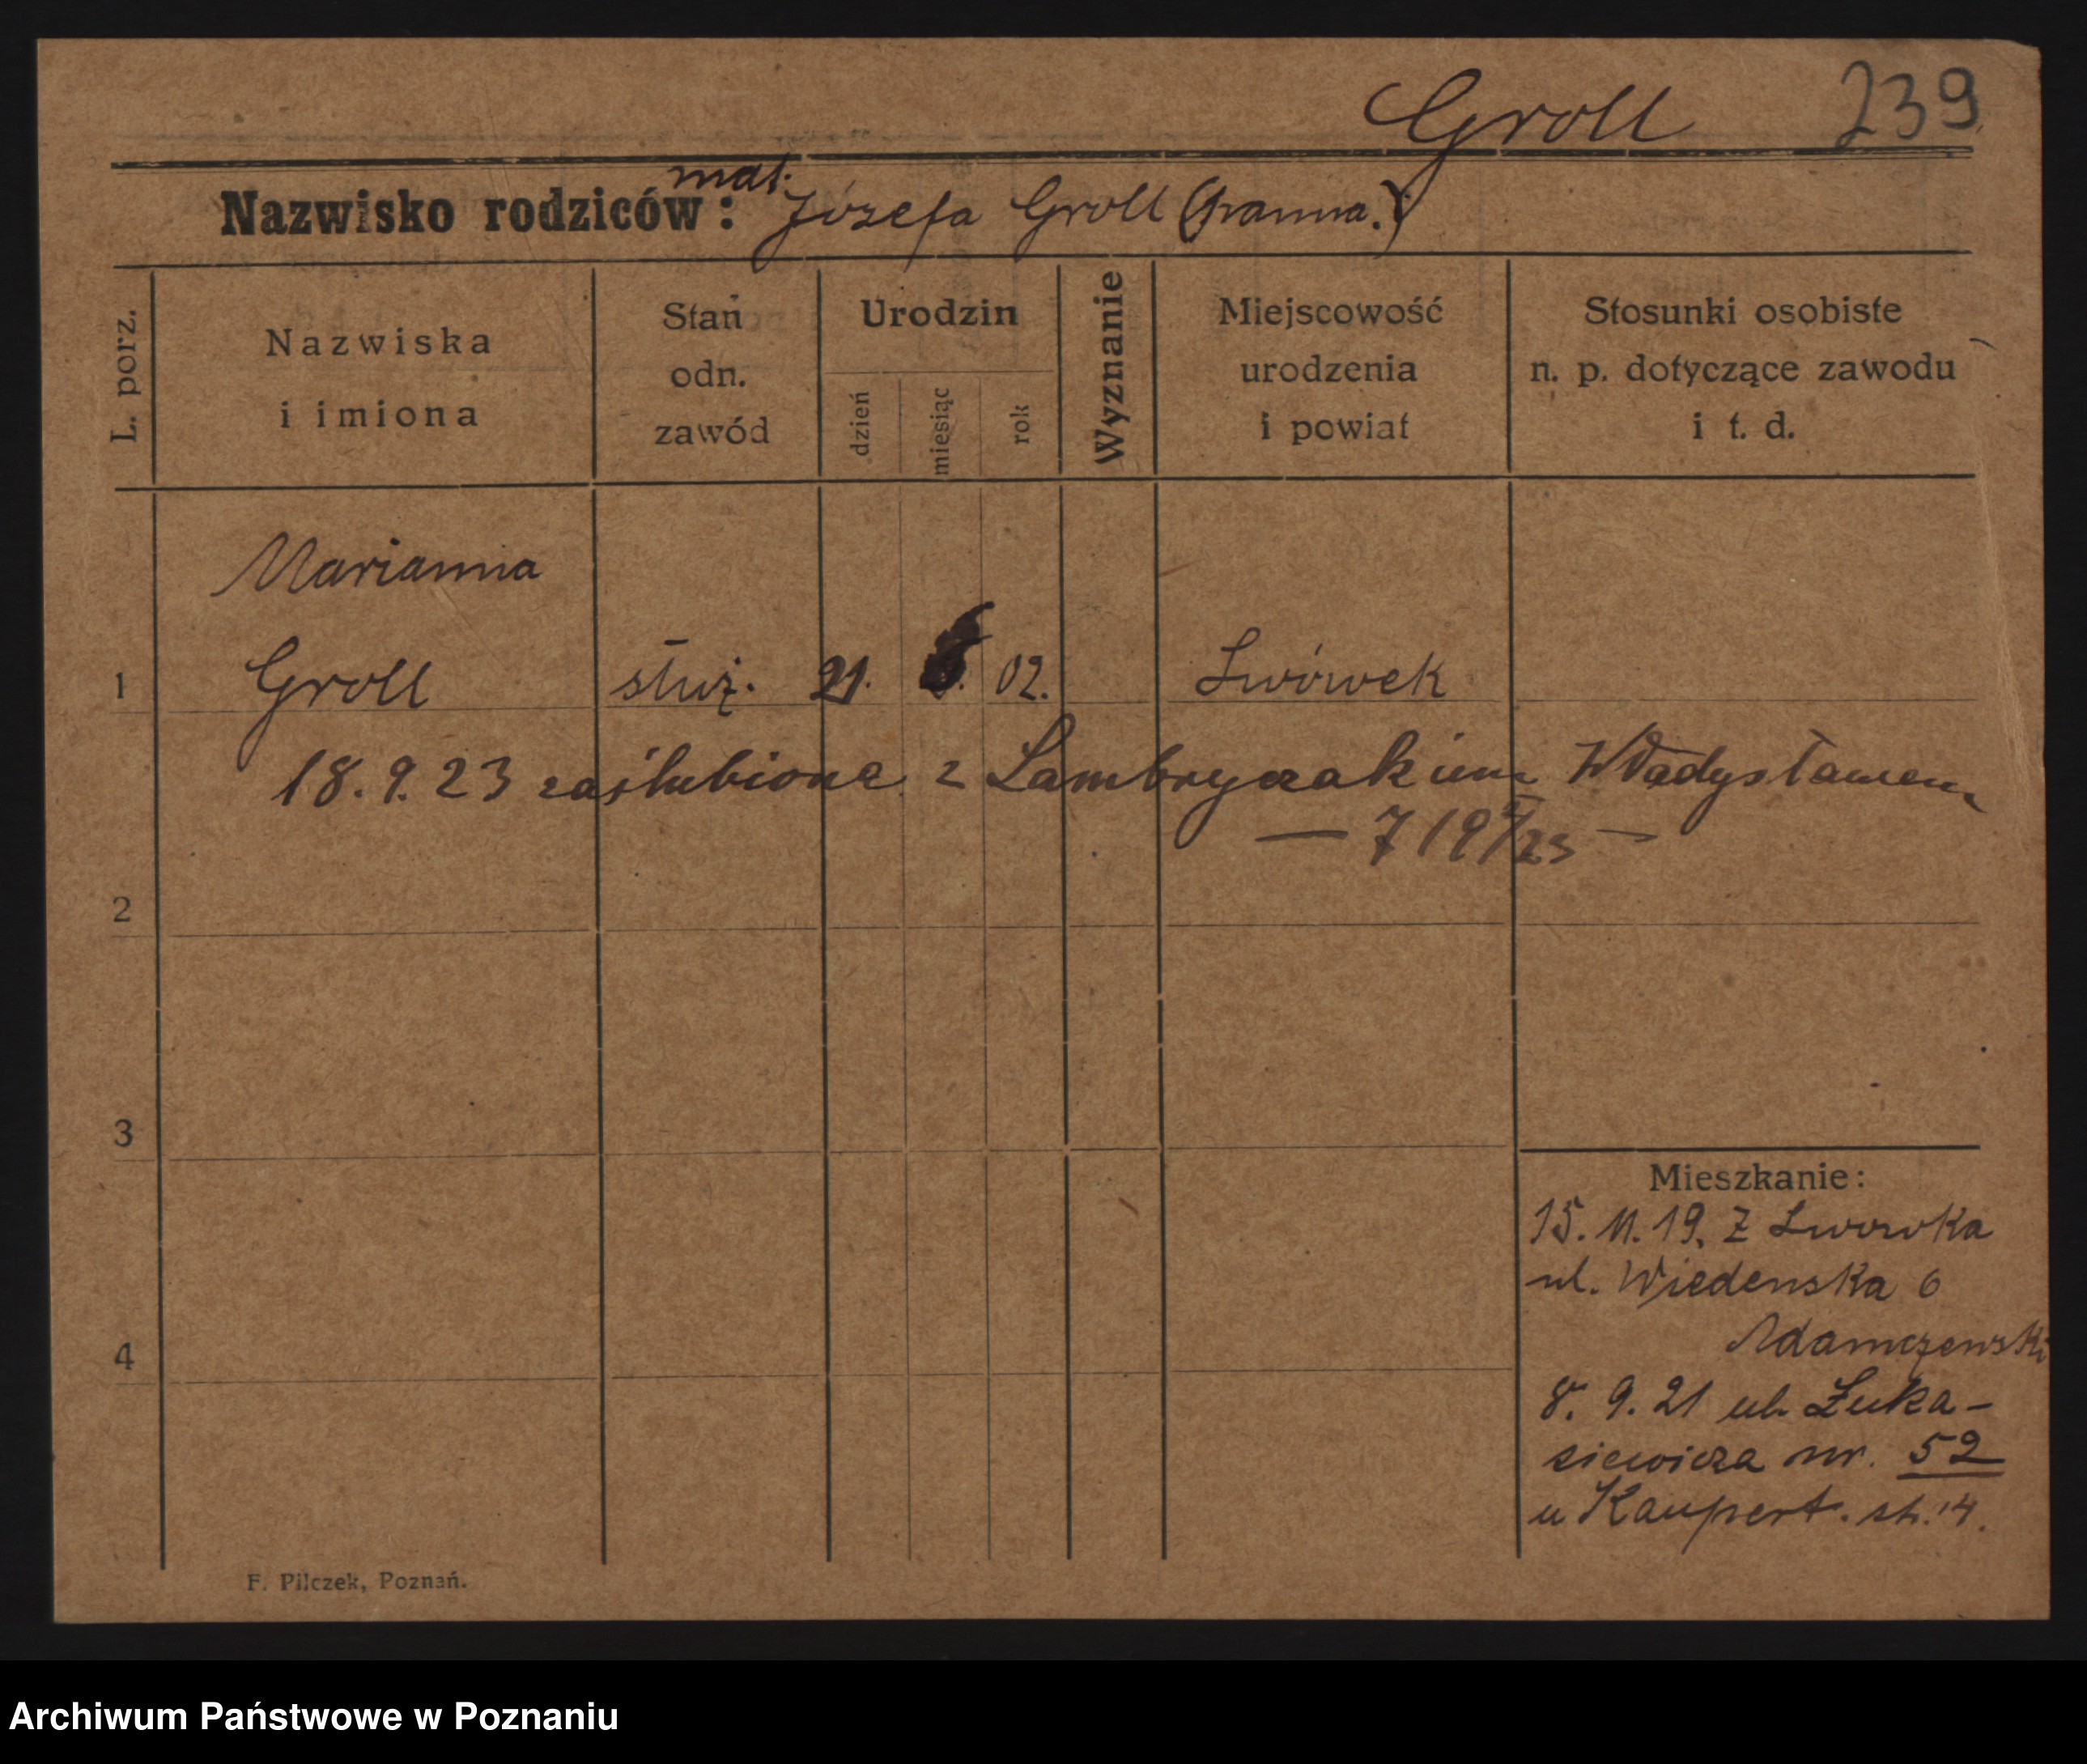 Groll 239
Nazwisko rodziców: mat. Józefa Groll (Panna.)
L. porz.
Nazwiska i imiona
Stan odn. zawód
Urodzin
dzień
miesiąc
rok
Wyznanie
Miejscowość urodzenia i powiat
Stosunki osobiste n. p. dotyczące zawodu i t. d.
Marianna
1 Groll służ. 21. 02. Lwówek
18.9.23 zaślubiona z Lambryczakiem Władysławem
2
3
4
Mieszkanie:
15. 11. 19. Z Lwowka
ul. Wiedenska 6
Adamczewski
8. 9. 21 ul. Łuka-
siewicza nr. 52
u Kaupert.
F. Pilczek, Poznań.
Archiwum Państwowe w Poznaniu